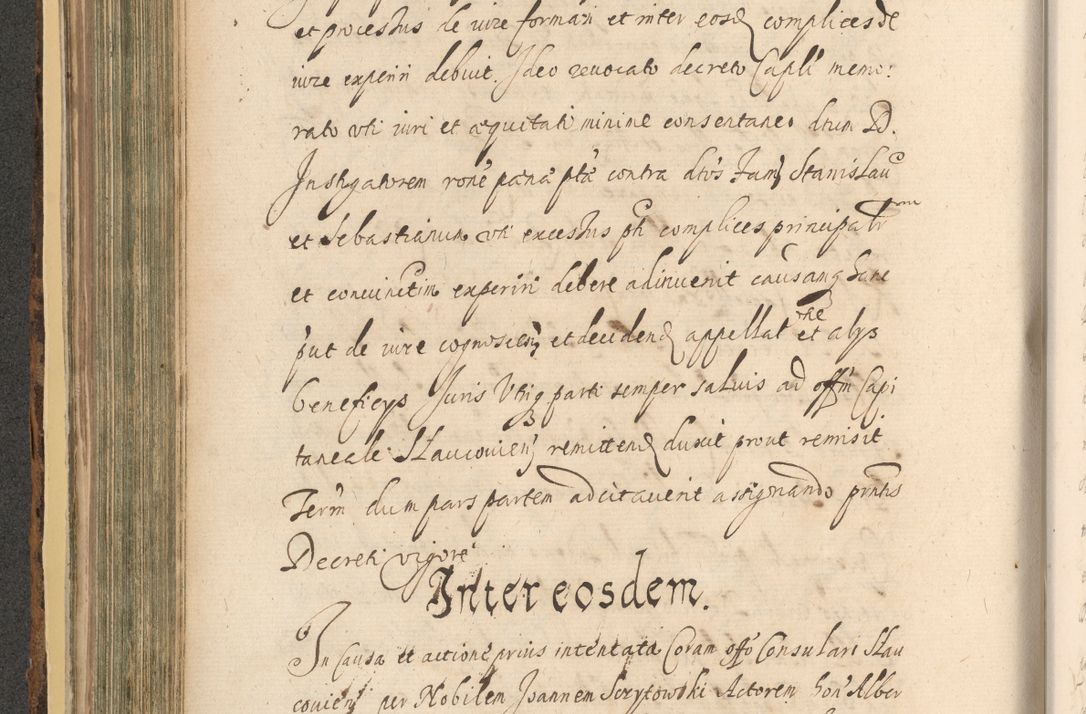 et processus de iure formari et inter eosq complices de
iure experiri debuit. Ideo revocato decreto Capli memo:
rato uti iuri et æquitati minime consentaneo dtum D.
Instigatorem rone pana pta contra dtos Jam Stanislau
et Sebastianum uti excessus pti complices principalr
et convinctim experiri debere adinvenit causamq hanc
put de iure cognoscen et decidend appellat one et alys
beneficys Juris Utiq parti semper salvis ad offm Capi
taneale Slaucovien remittend duxit prout remisit
Term dum pars partem adcitaverit assignando prntis
Decreti vigore
Inter eosdem.
In Causa et actione prius intentata Coram offo Consulari Slau
covien per Nobilem Joannem Sczytowski Actorem hon Alber